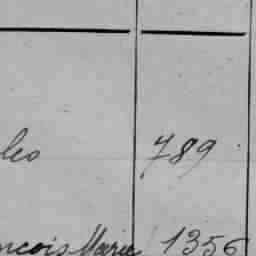 leo 789
ncois Marie 1356